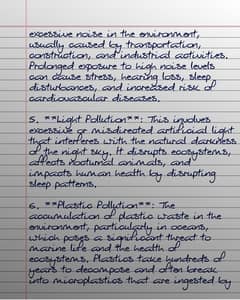 excessive noise in the environment,
usually caused by transportation,
construction, and industrial activities.
Prolonged exposure to high noise levels
can cause stress, hearing loss, sleep
disturbances, and increased risk of
cardiovascular diseases.
5. **Light Pollution**: This involves
excessive or misdirected artificial light
that interferes with the natural darkness
of the night sky. It disrupts ecosystems,
affects nocturnal animals, and
impacts human health by disrupting
sleep patterns.
6. **Plastic Pollution**: The
accumulation of plastic waste in the
environment, particularly in oceans,
which poses a significant threat to
marine life and the health of
ecosystems. Plastics take hundreds of
years to decompose and often break
into microplastics that are ingested by